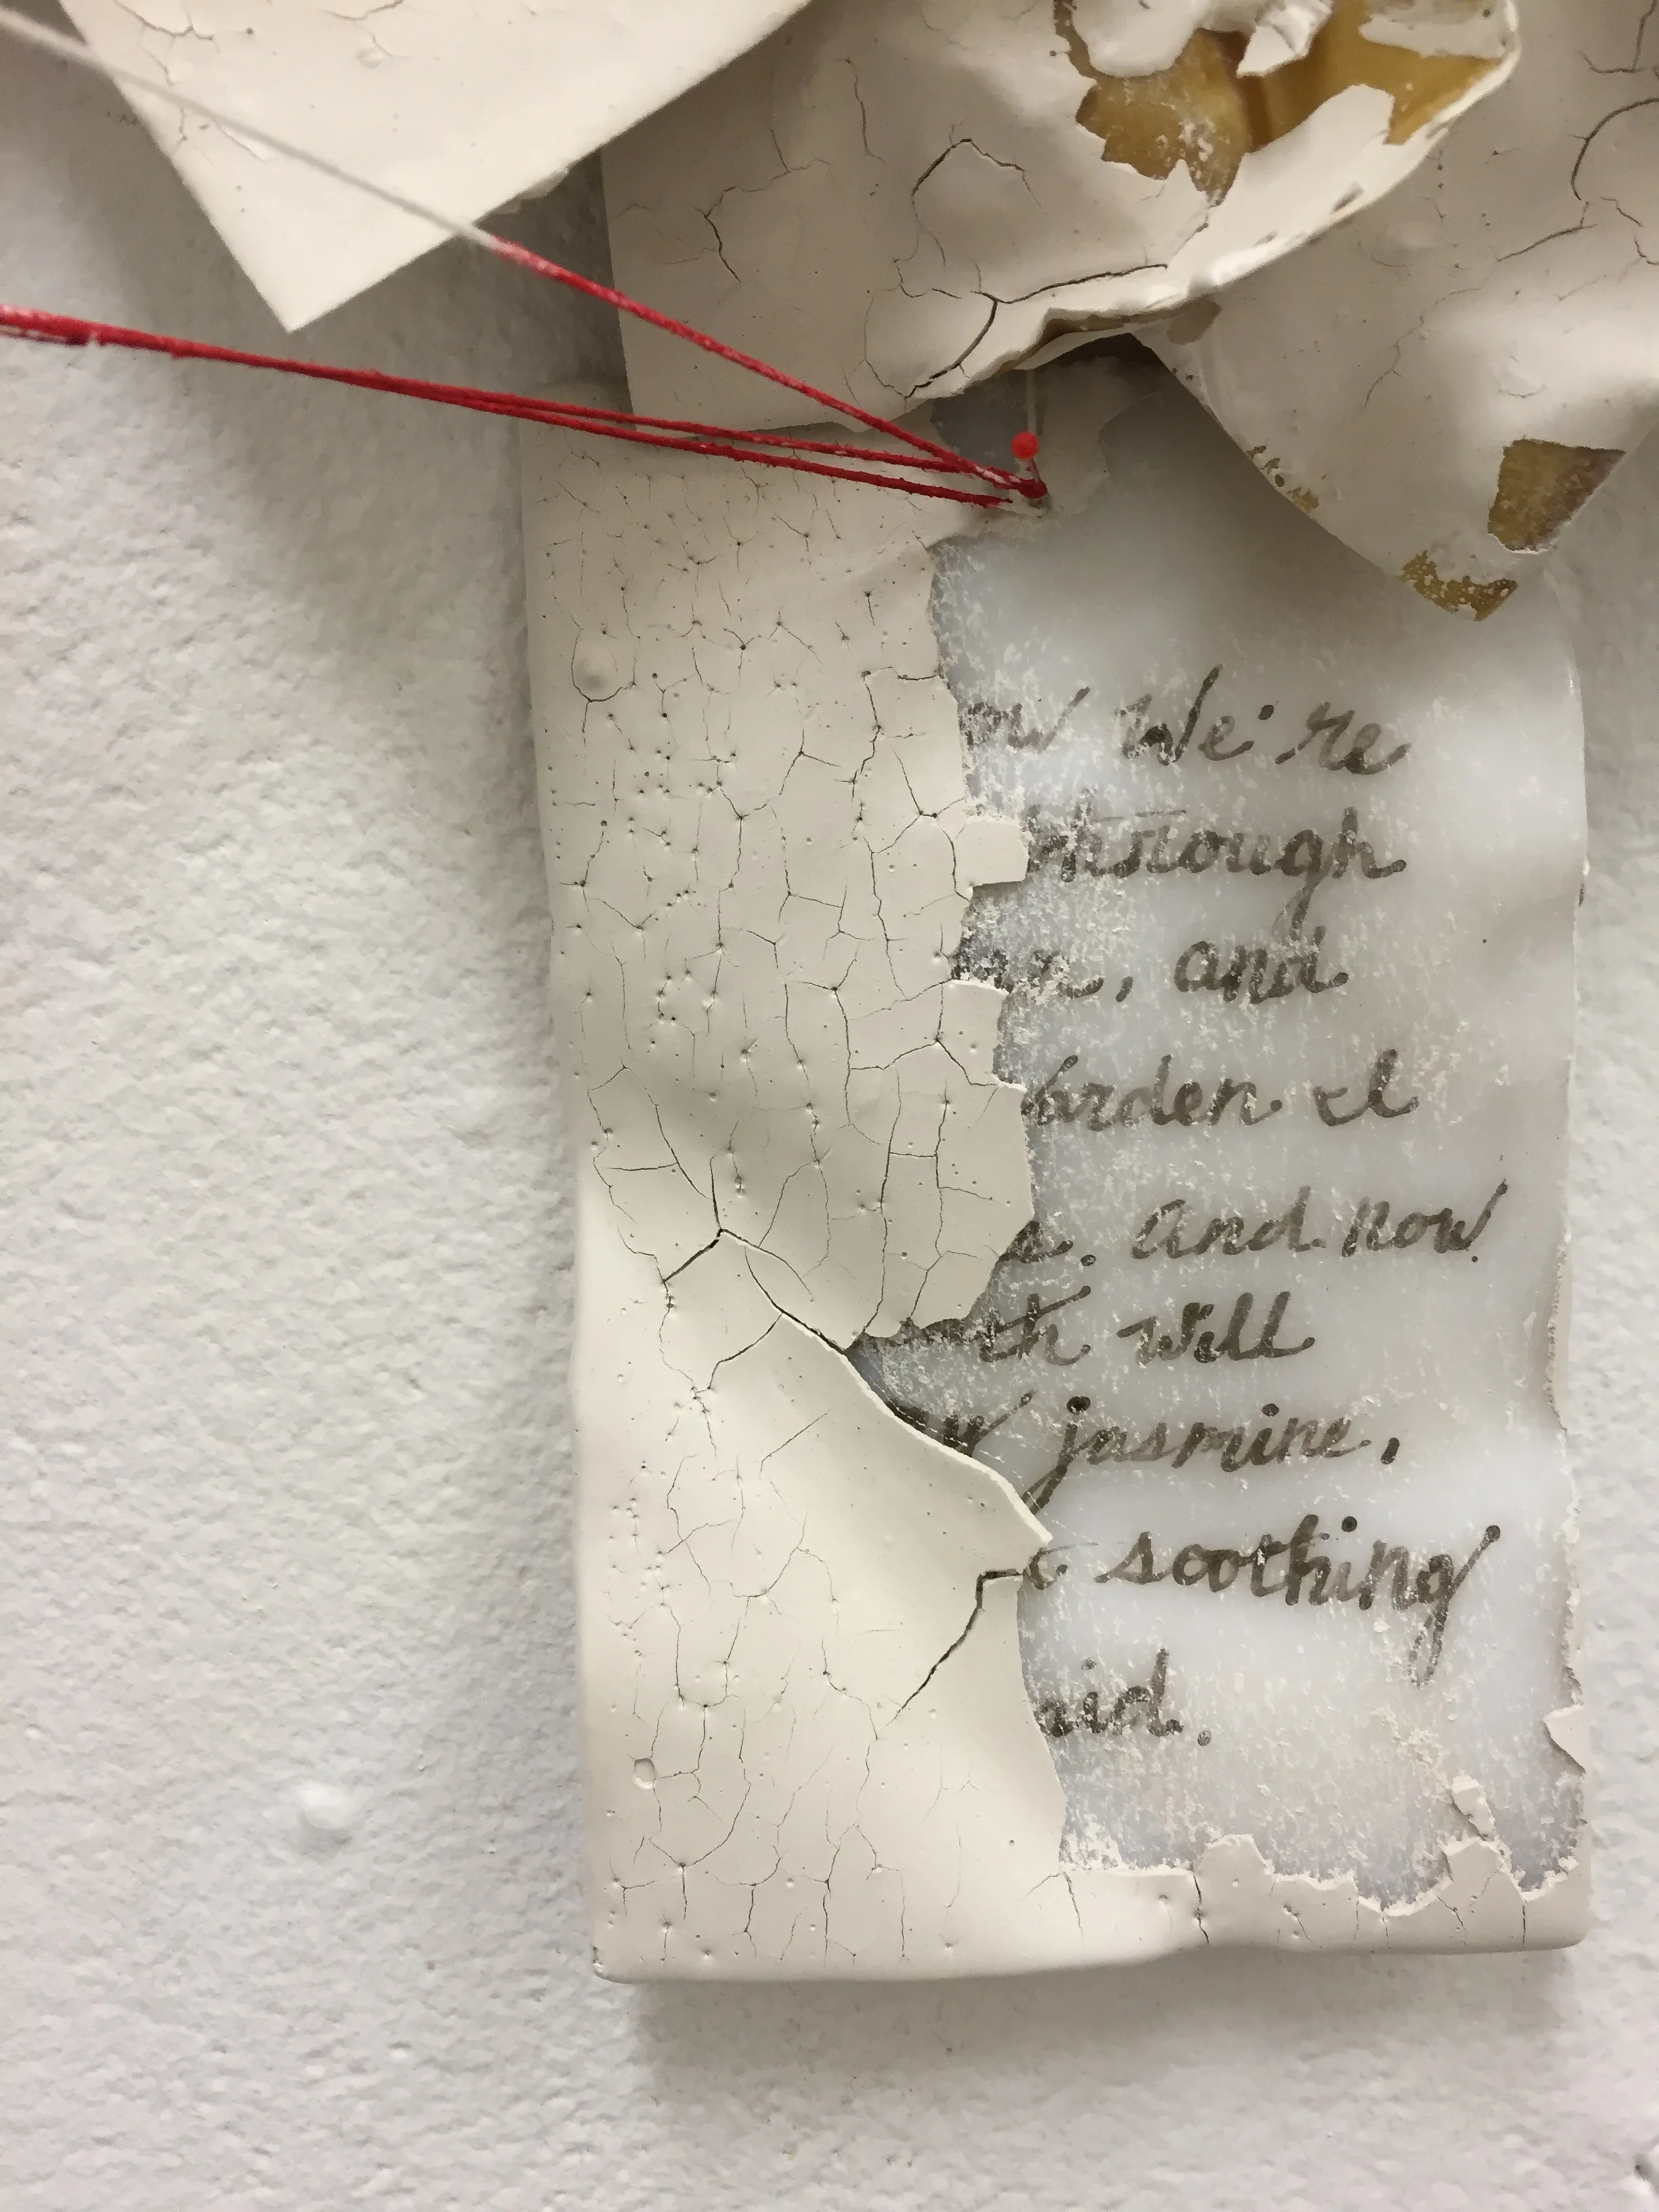 ow We're
through
, and
arden I
e. and now
th will
w jasmine,
t soothing
aid.